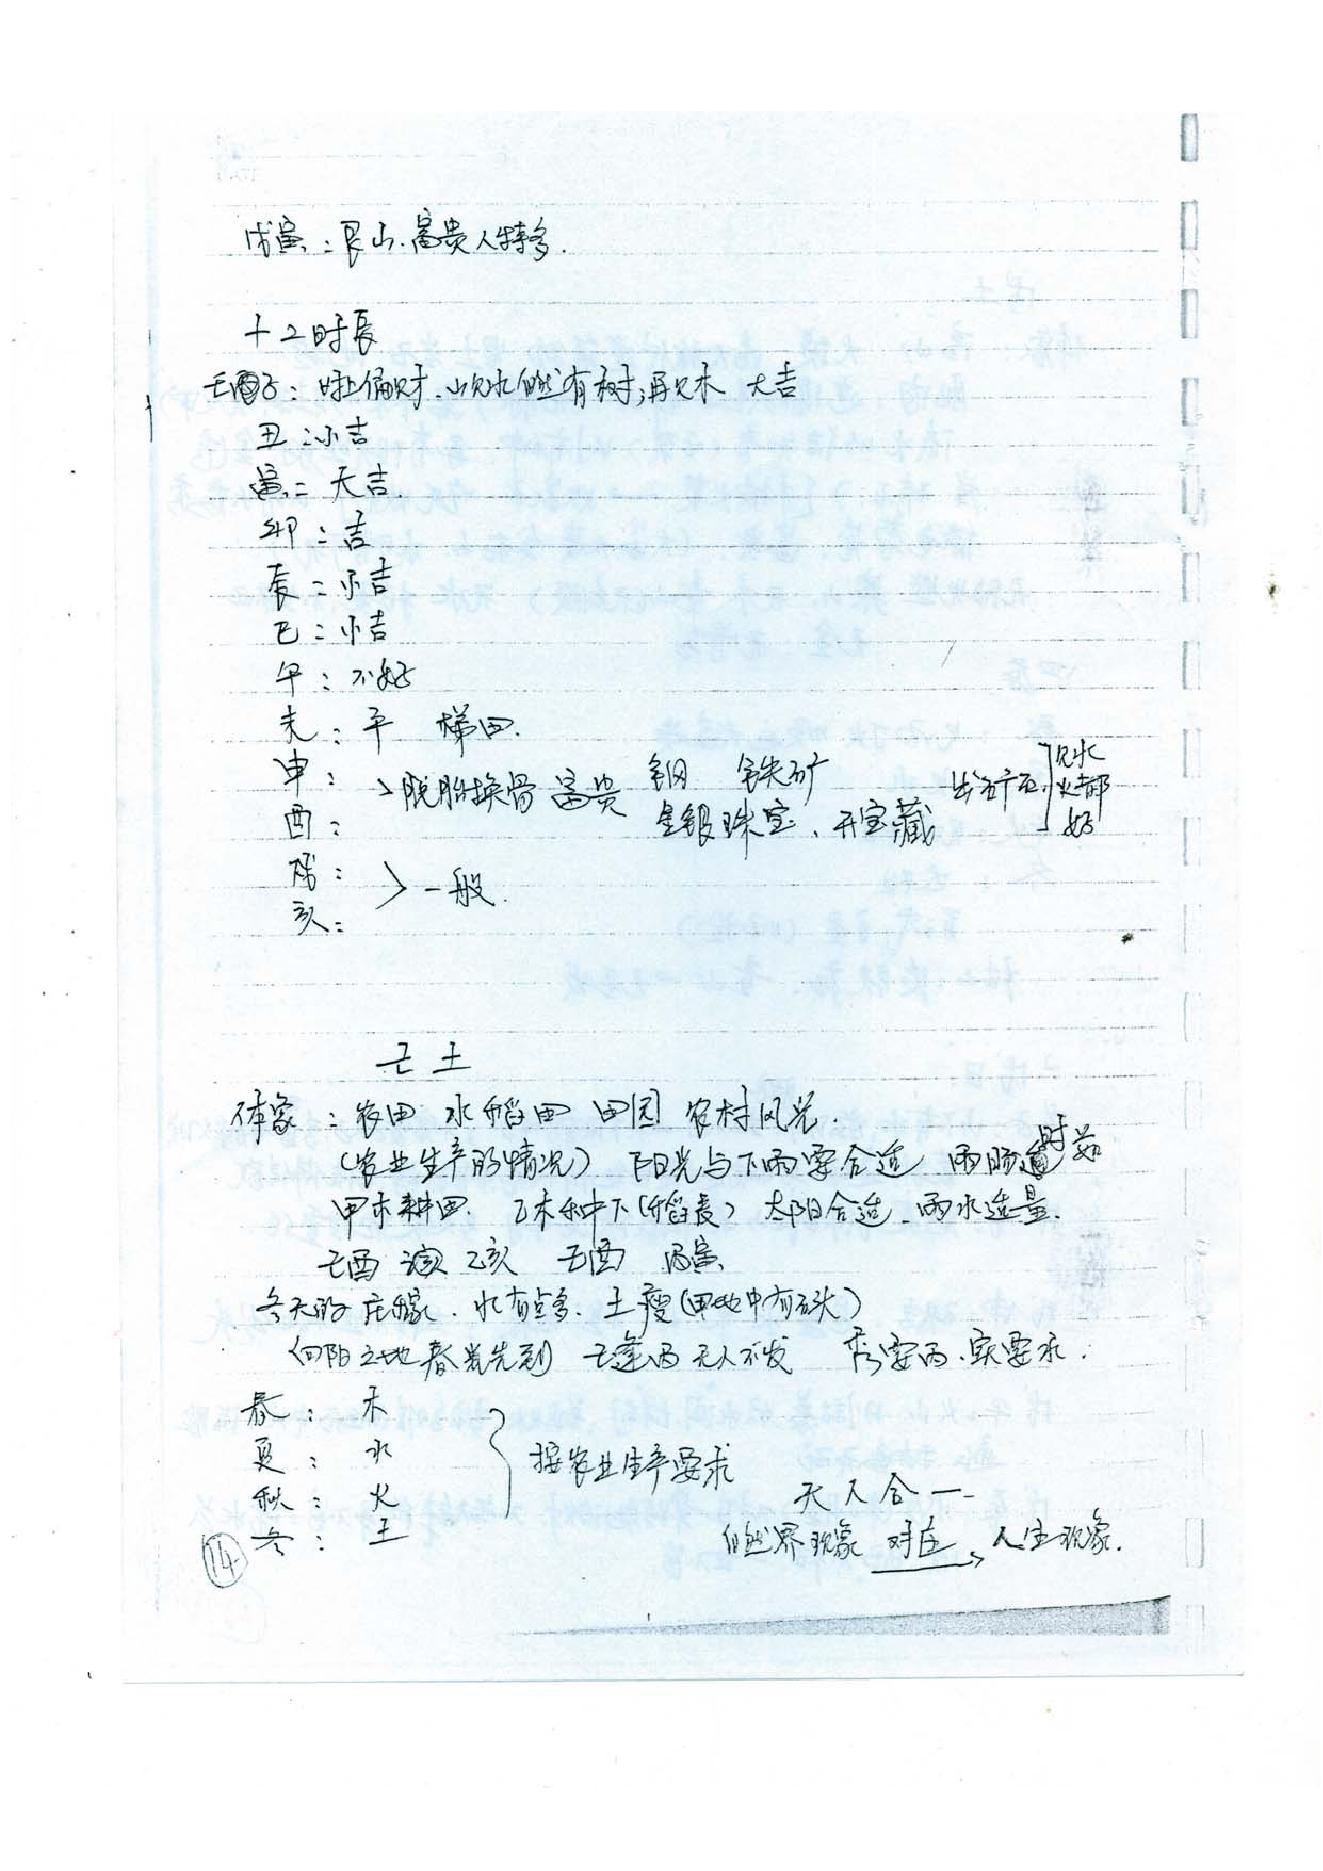 戊寅：艮山.富贵人特多.
十二时辰
壬子：时上偏财.山见水自然有树;再见木 大吉
丑：小吉
寅：大吉.
卯：吉
辰：小吉
巳：小吉
午：不好
未：平 梯田.
申： >脱胎换骨 富贵 铜 铁矿 出矿石.]见水火都好
酉： 金银珠宝、开宝藏
戌： >一般.
亥：
己土
体象：农田 水稻田 田园 农村风光.
(农业生产的情况) 阳光与下雨要合适 雨旸时若
甲木耕田. 乙木种下(稻长) 太阳合适.雨水适量.
己酉 乙亥 己酉 丙寅
冬天的庄稼.水有点多.土瘦(田地中有石头)
(向阳之地春光先到) 己逢丙无人不发 秀要丙.实要水.
春： 木
夏： 水 }按农业生产要求
秋： 火 天人合一
冬： 土 自然界现象 对应→人生现象.
14